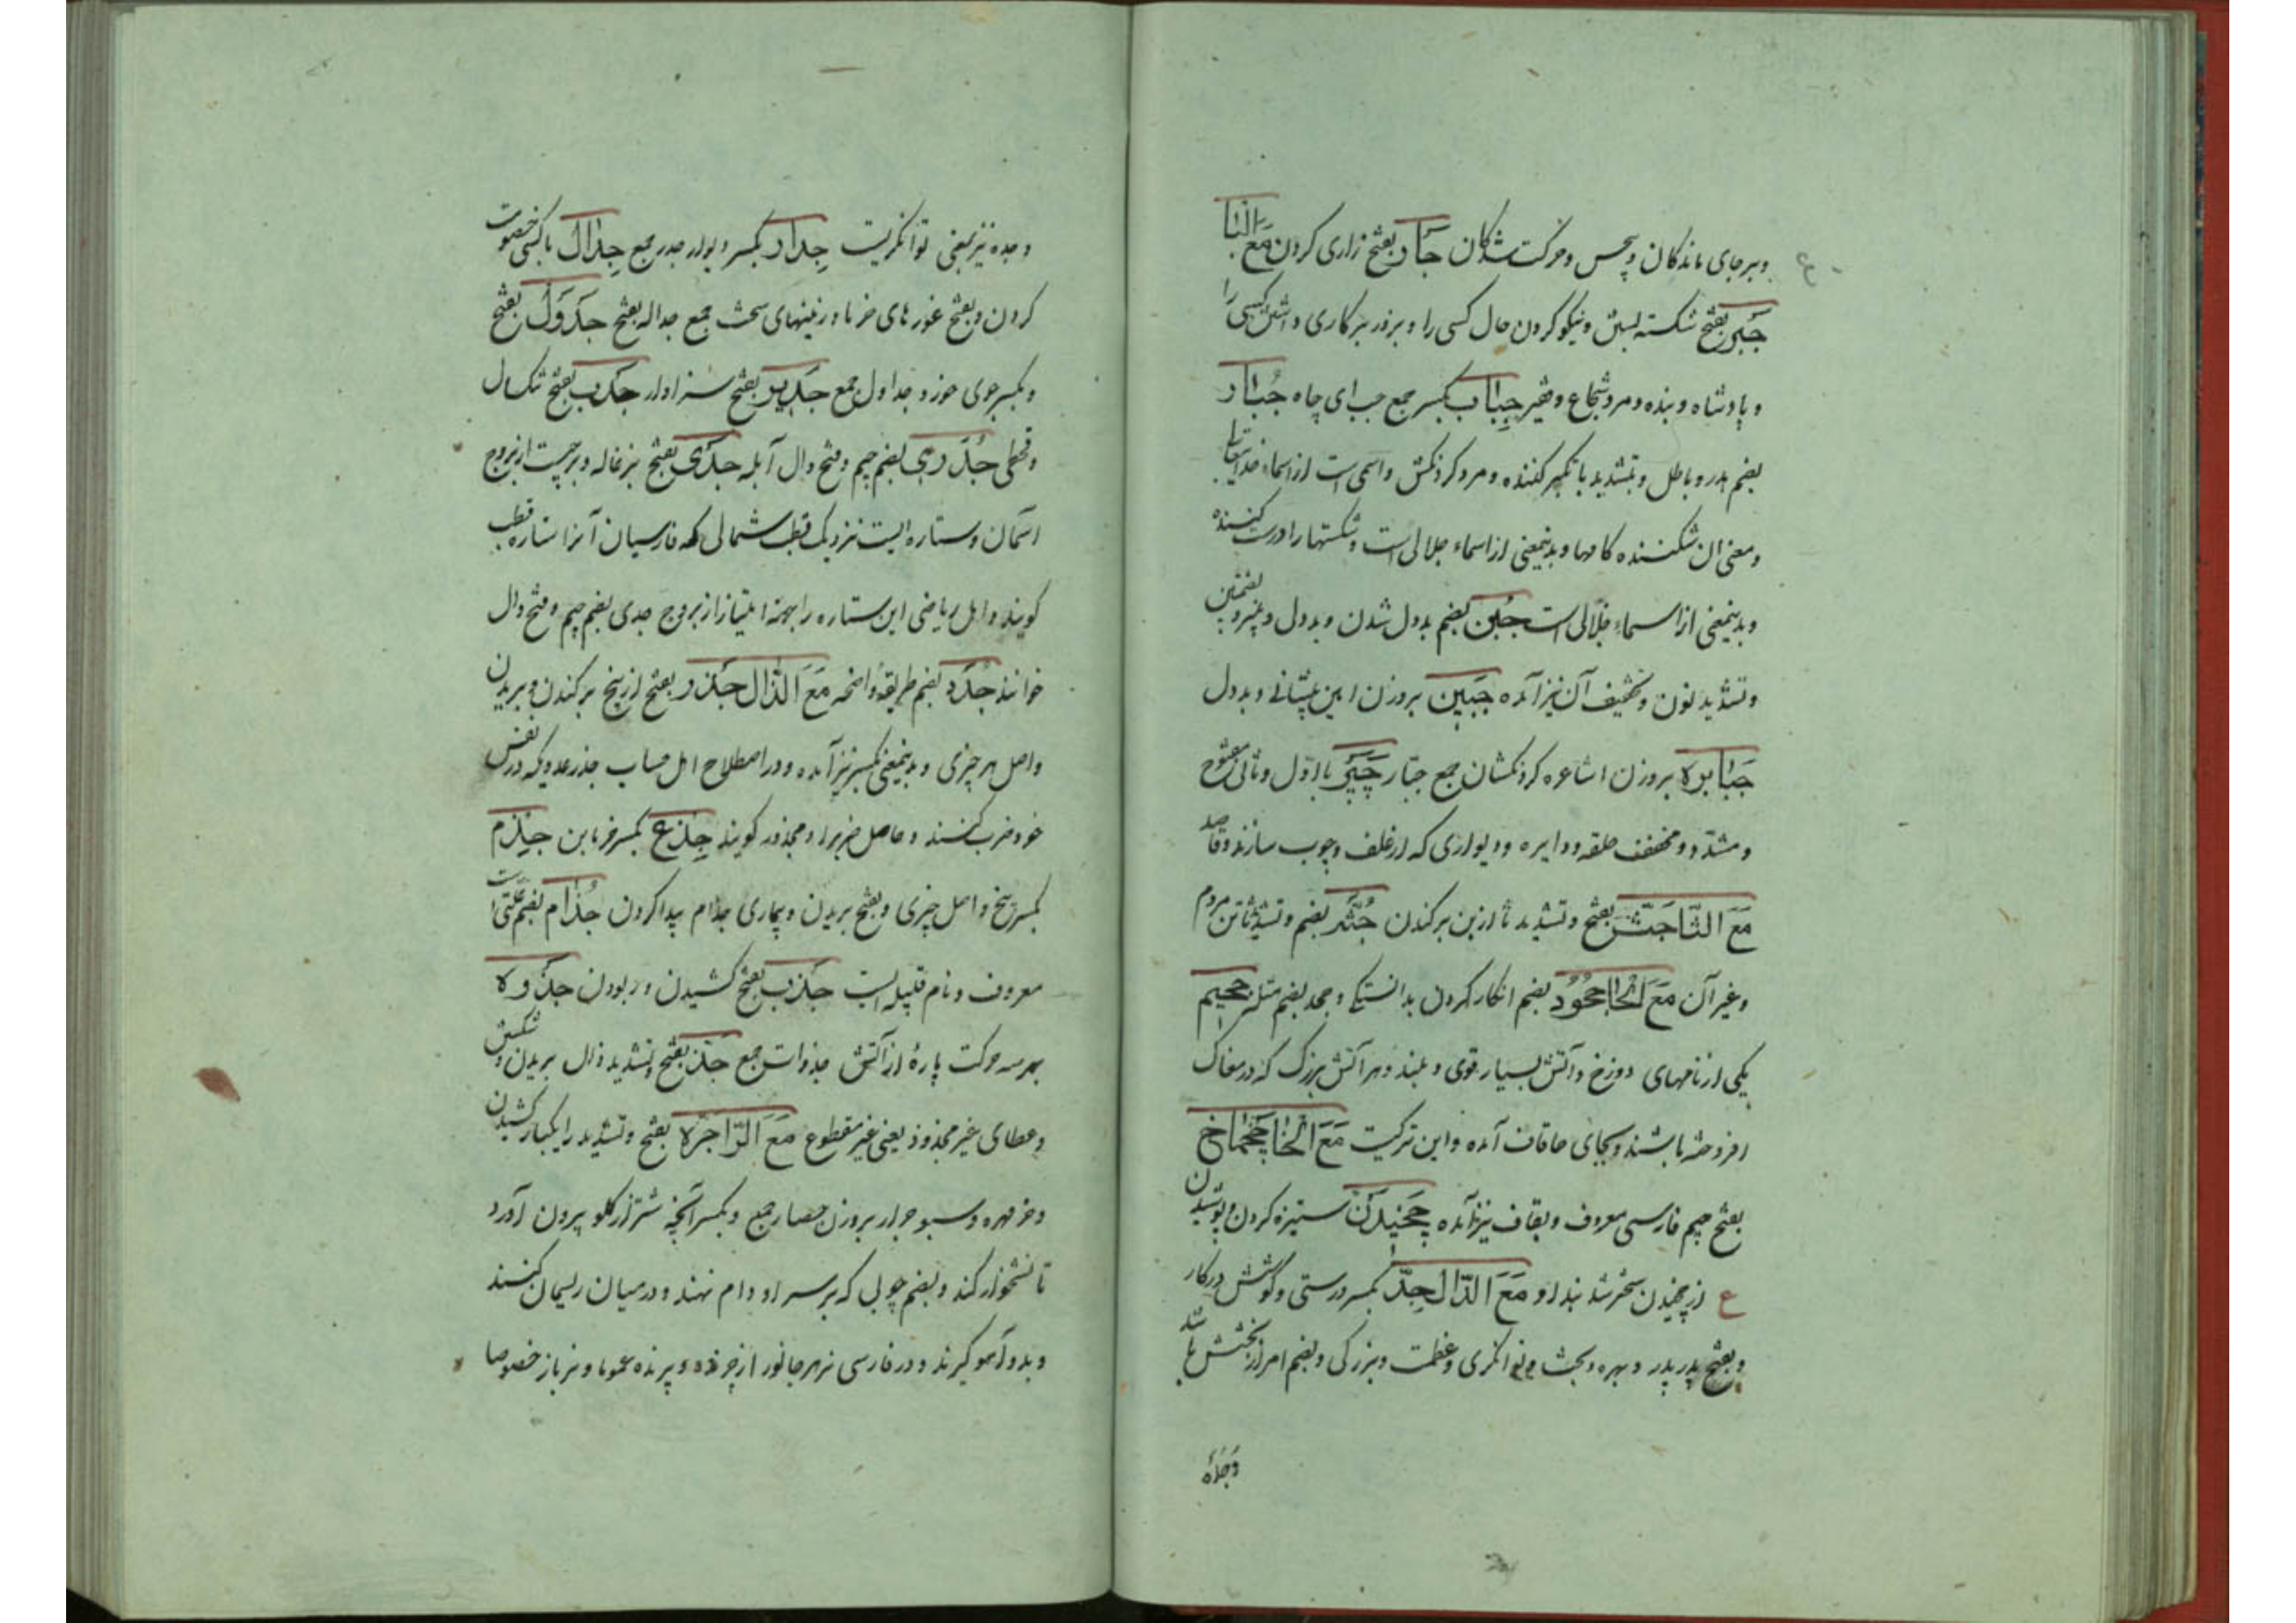 وبرجای ماندکان وبیحس وحرکت شدکان جَاَر بفتح زاری کردن مَعَ البَا
جَبر بفتح شکسته بستن ونیکو کردن حال کسی را وبزور برکاری داشتن کسی را
وپادشاه وبنده ومرد شجاع وفقیر جِبَاب بکسر جمع جب ای چاه جُبَار
بضم هدر وباطل وبتشدید با تکبر کننده ومرد کردنکش واسمی است از اسماء خدایتعا
ومعنی ان شکننده کامها وبدینمعنی از اسماء جلالی است وشکستها را درست کننده
وبدینمعنی از اسماء جلالی است جُبن بضم بددل شدن وبددل وپنیر وبضمتین
وتشدید نون وتخفیف آن نیز آمده جَبین بروزن امین پیشانی وبددل
جَبَابره بروزن اشاعره کردنکشان جمع جبار چَپَر باول وثانی مفتوح
ومشدد ومخفف حلقه ودایره ودیواری که از علف وچوب سازند وقاصد
مَعَ الثَّا جَثّ بفتح وتشدید ثا از بن برکندن جُثّه بضم وتشدید ثا تن مردم
وغیر آن مَعَ الحَا جُحُود بضم انکار کردن بدانستکی وجحد بضم مثله جحیم
یکی از نامهای دوزخ وآتش بسیار قوی وبلند وهر آتش بزرک که در مغاک
افروخته باشند وبجای خاقان آمده واین ترکیست مَعَ الخَا چَخماخ
بفتح جیم فارسی معروف وبقاف نیز آمده چَخیدَن ستیزه کردن وکوشیدن
ع از چخیدن سخر شد بند او مَعَ الدَّال جِدّ بکسر درستی وکوشش در کار
وبفتح پدر پدر وبهره وبخت وتوانکری وعظمت وبزرکی وبضم امر از بخشش باشد
وجده
وجده نیز بمعنی توانکریست جِدَار بکسر دیوار جدر جمع جِدَال با کسی خصومت
کردن وبفتح غوره های خرما در زمینهای سخت جمع جداله بفتح جَدوَل بفتح
وبکسر جوی خورد جداول جمع جَدیر بفتح سزاوار جَدب بفتح تنکسال
وقحطی جُدَری بضم جیم وفتح دال آبله جَدی بفتح بزغاله وبرجیست از بروج
آسمان وستاره ایست نزدیک قطب شمالی که فارسیان آنرا ستاره قطب
کویند واهل ریاضی این ستاره را بجهة امتیاز از بروج جدی بضم جیم وفتح دال
خوانند جُدَد بضم طریقه واضحه مَعَ الذَّال جَذر بفتح از بیخ برکندن وبریدن
واصل هر چیزی وبدینمعنی بکسر نیز آمده ودر اصطلاح اهل حساب جذر عددیکه در نفس
خود ضرب کنند وحاصل ضرب را مجذور کویند جِذع بکسر خرمابن جِذم
بکسر بیخ واصل چیزی وبفتح بریدن وبیماری جذام پیدا کردن جُذَام بضم علتی است
معروف ونام قبیله ایست جَذب بفتح کشیدن وربودن جذوه
بهر سه حرکت پارهٔ از آتش جذوات جمع جَذ بفتح وتشدید ذال بریدن وشکستن
وعطای غیر مجذوذ یعنی غیر مقطوع مَعَ الرَّا جَرّه بفتح وتشدید را یکبار کشیدن
وخرمهره وسبو جرار بروزن حصار جمع وبکسر آنچه شتر از کلو بیرون آورد
تا نشخوار کند وبضم چوبی که بر سر او دام نهند ودر میان ریسمان کنند
وبدو آهو کیرند ودر فارسی نر هر جانور از چرنده وپرنده عموما ونر باز خصوصا